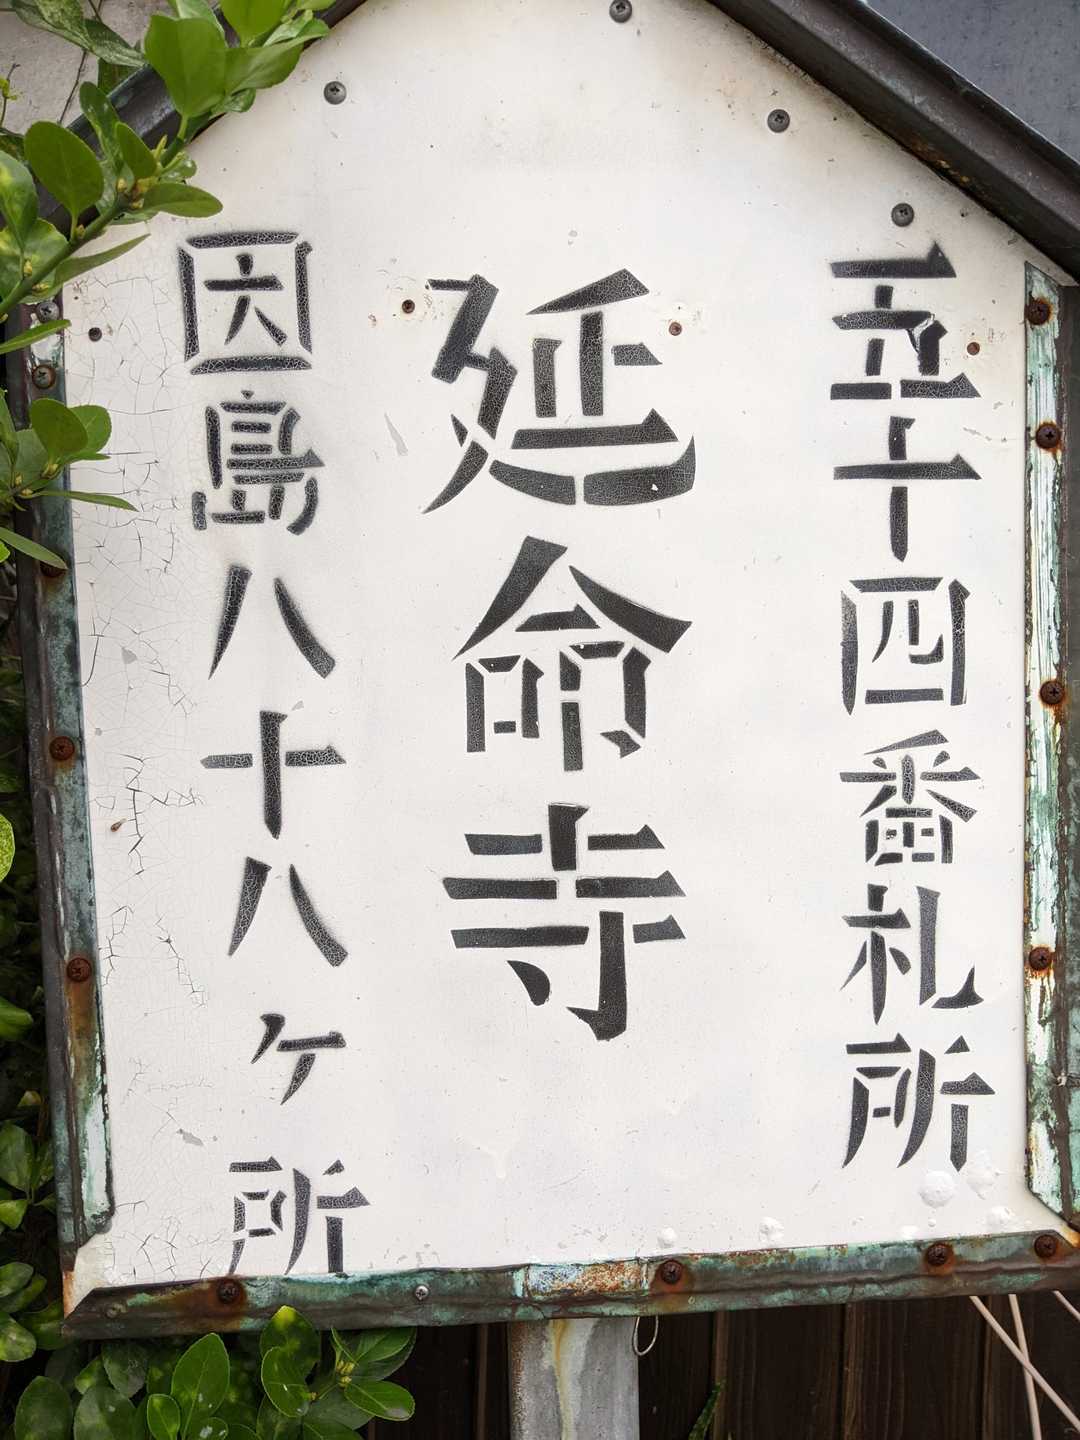 五十四番札所
延命寺
因島八十八ヶ所